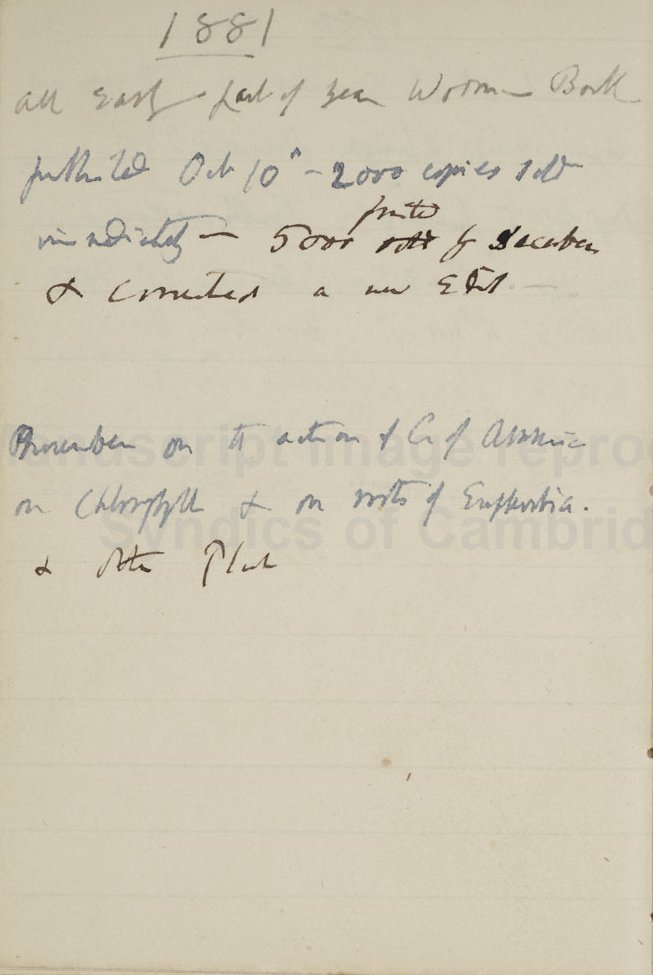 1881
All early part of year Worm Book
published Oct 10th – 2000 copies sold
immediately — 5000 printed by December
& corrected a new Edit. —
November on the action of C. of Ammonia
on Chlorophyll & on roots of Euphorbia.
& other Plants
Manuscript image repro
Syndics of Cambrid